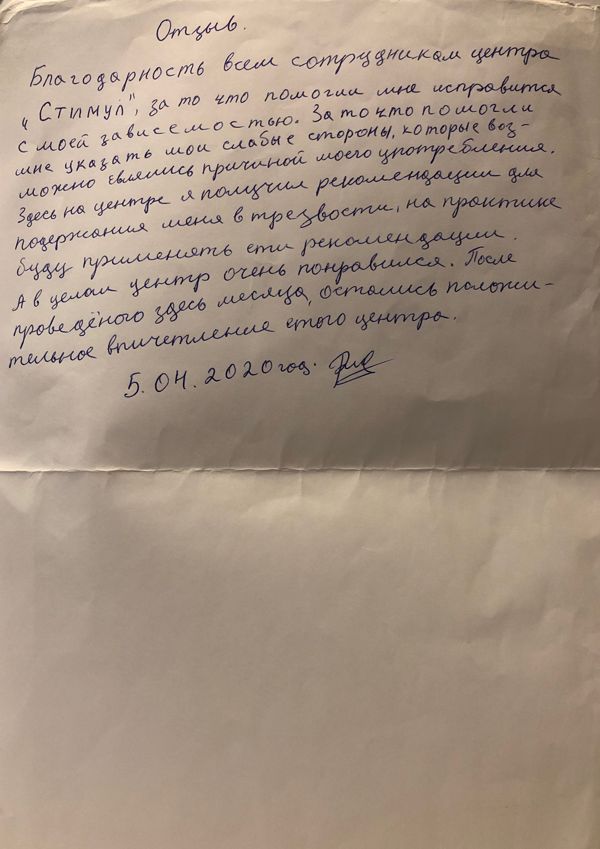 Отзыв.
Благодарность всем сотрудникам центра
"Стимул", за то что помогли мне исправится
с моей зависемостью. За то что помогли
мне указать мои слабые стороны, которые воз-
можно евлялись причиной моего употребления.
Здесь на центре я получил рекомендации для
подержания меня в трезвости, на практике
буду применять ети рекомендации.
А в целом центр очень понравился. После
проведёного здесь месяца, остались положи-
тельное впичетление етого центра.
5.04.2020 год.